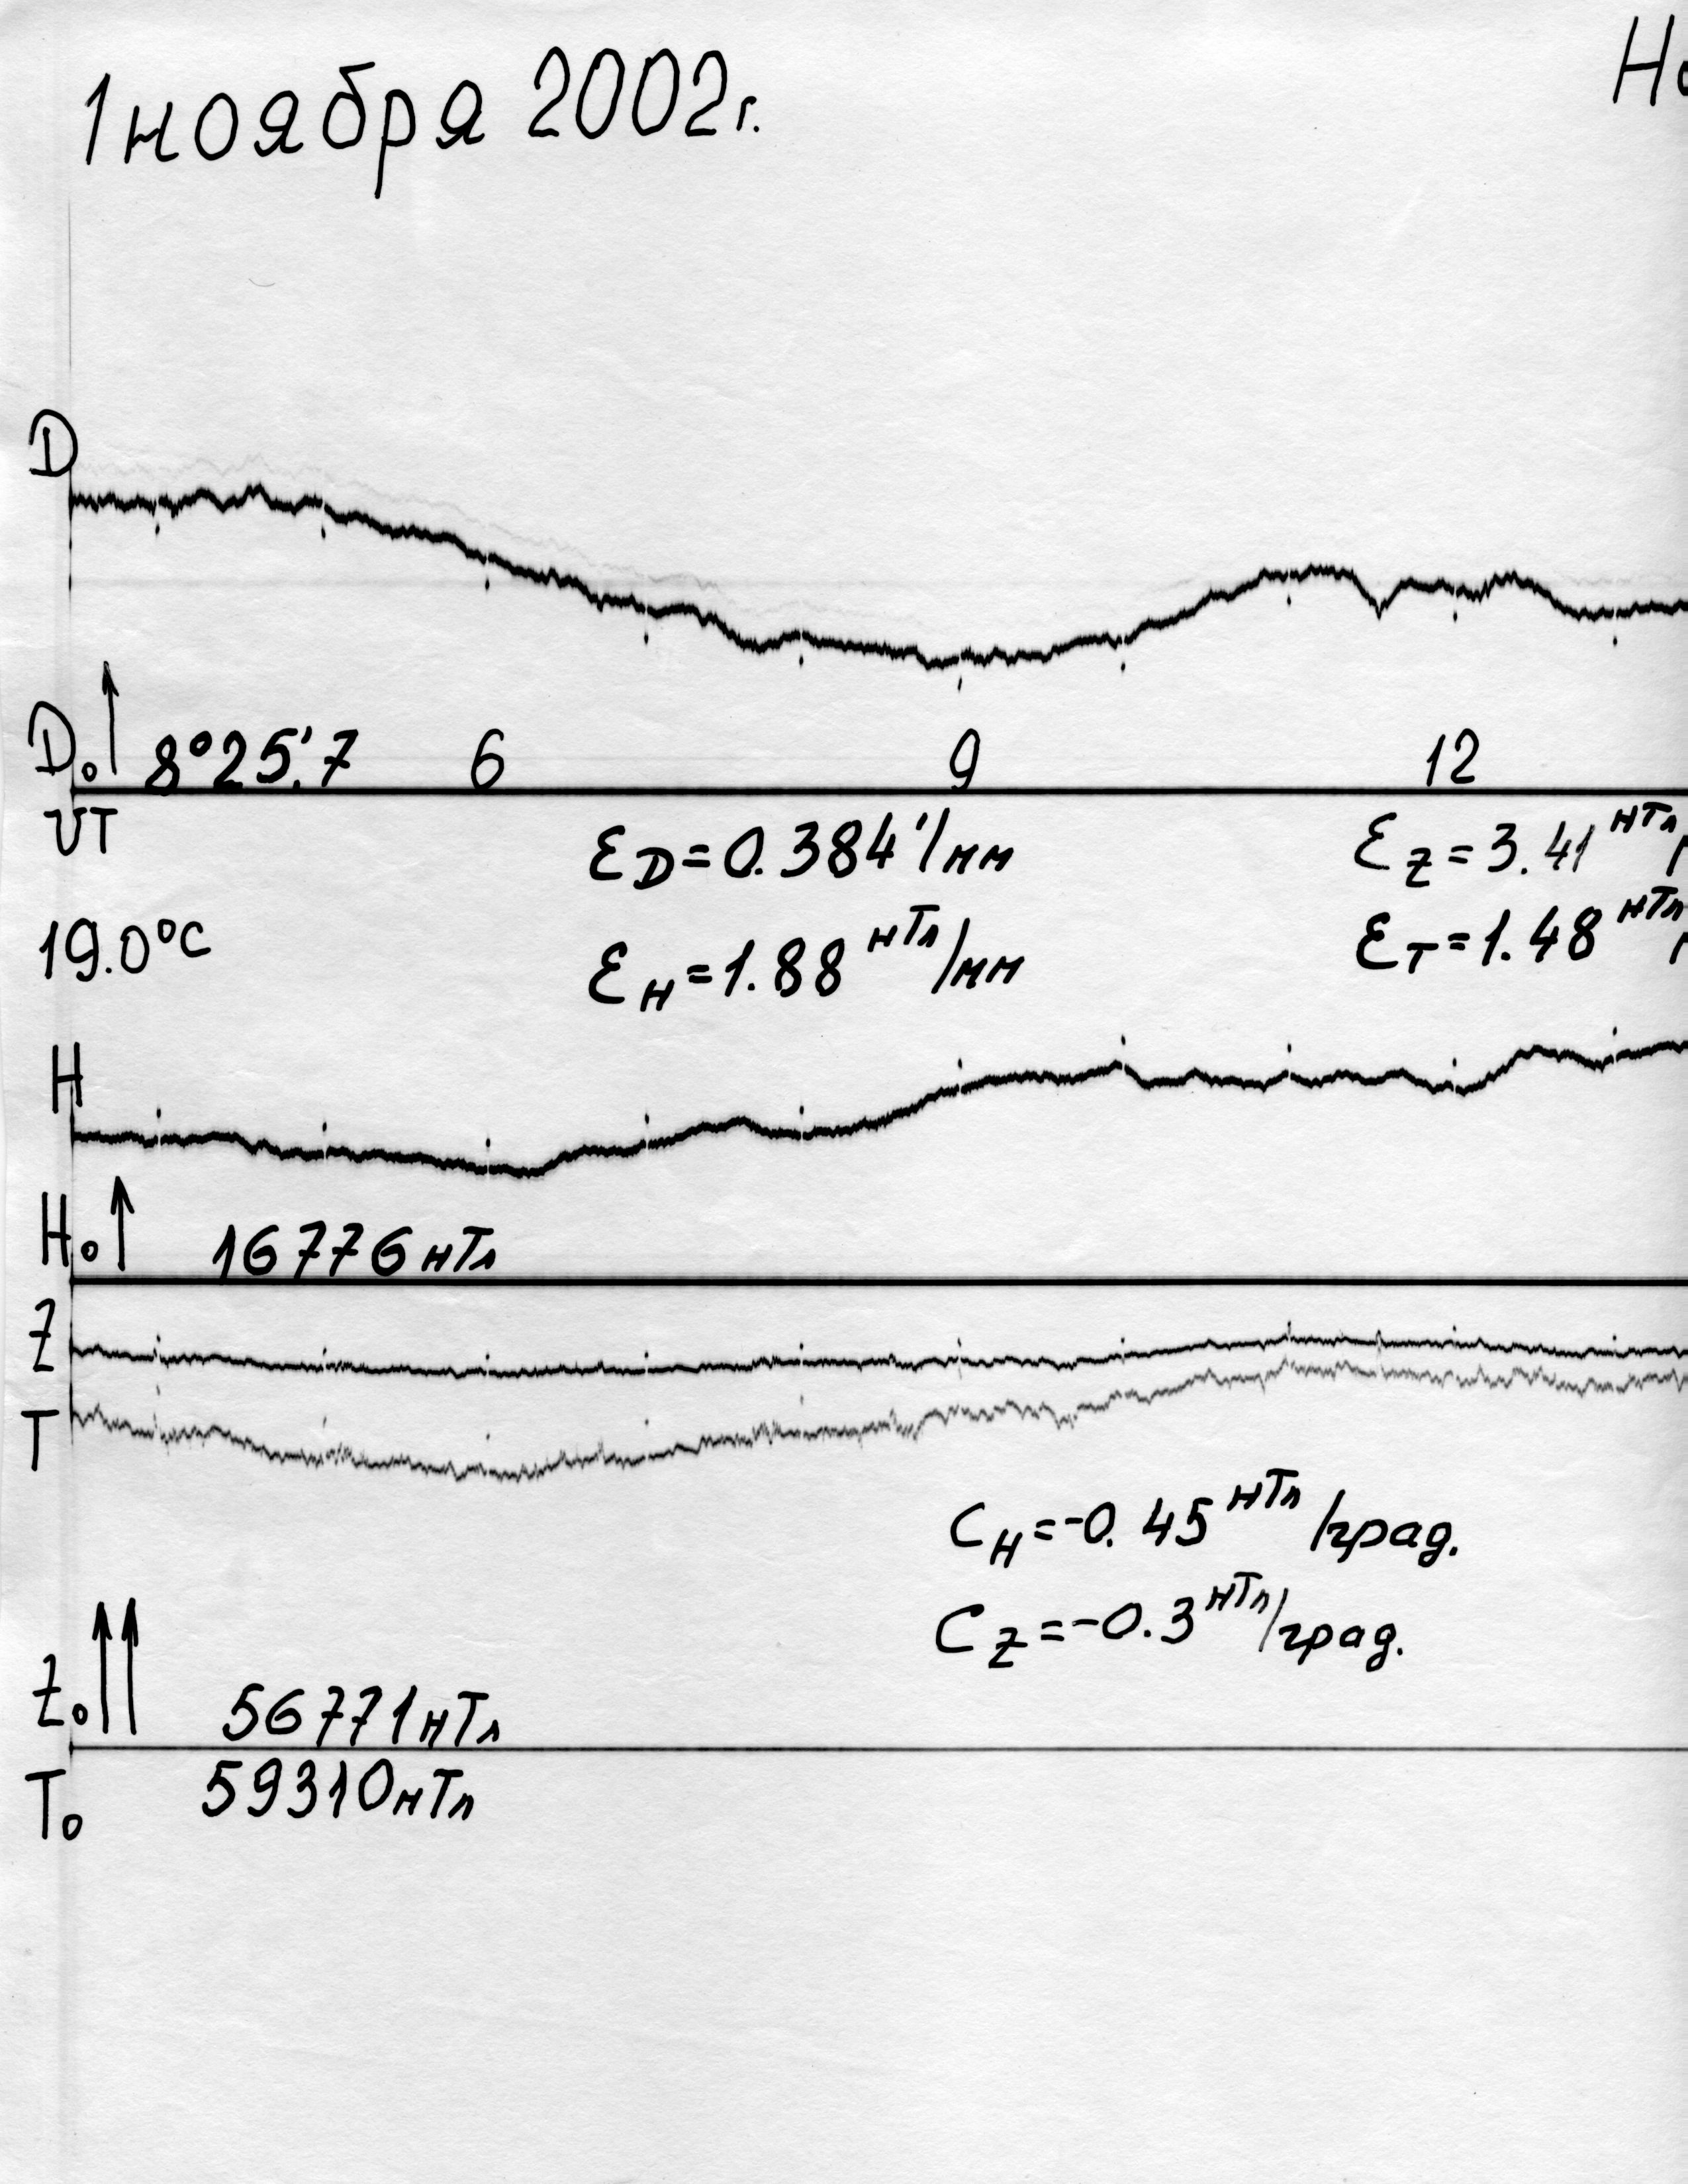 1 ноября 2002г.
D
D₀ 8°25.'7 6 9 12
UT
ε_D=0.384'/мм
ε_Z=3.41 нТл
19.0°C
ε_H=1.88 нТл/мм
ε_T=1.48 нТл
H
H₀ 16776 нТл
Z
T
C_H=-0.45 нТл/град.
C_Z=-0.3 нТл/град.
Z₀ 56771 нТл
T₀ 59310 нТл